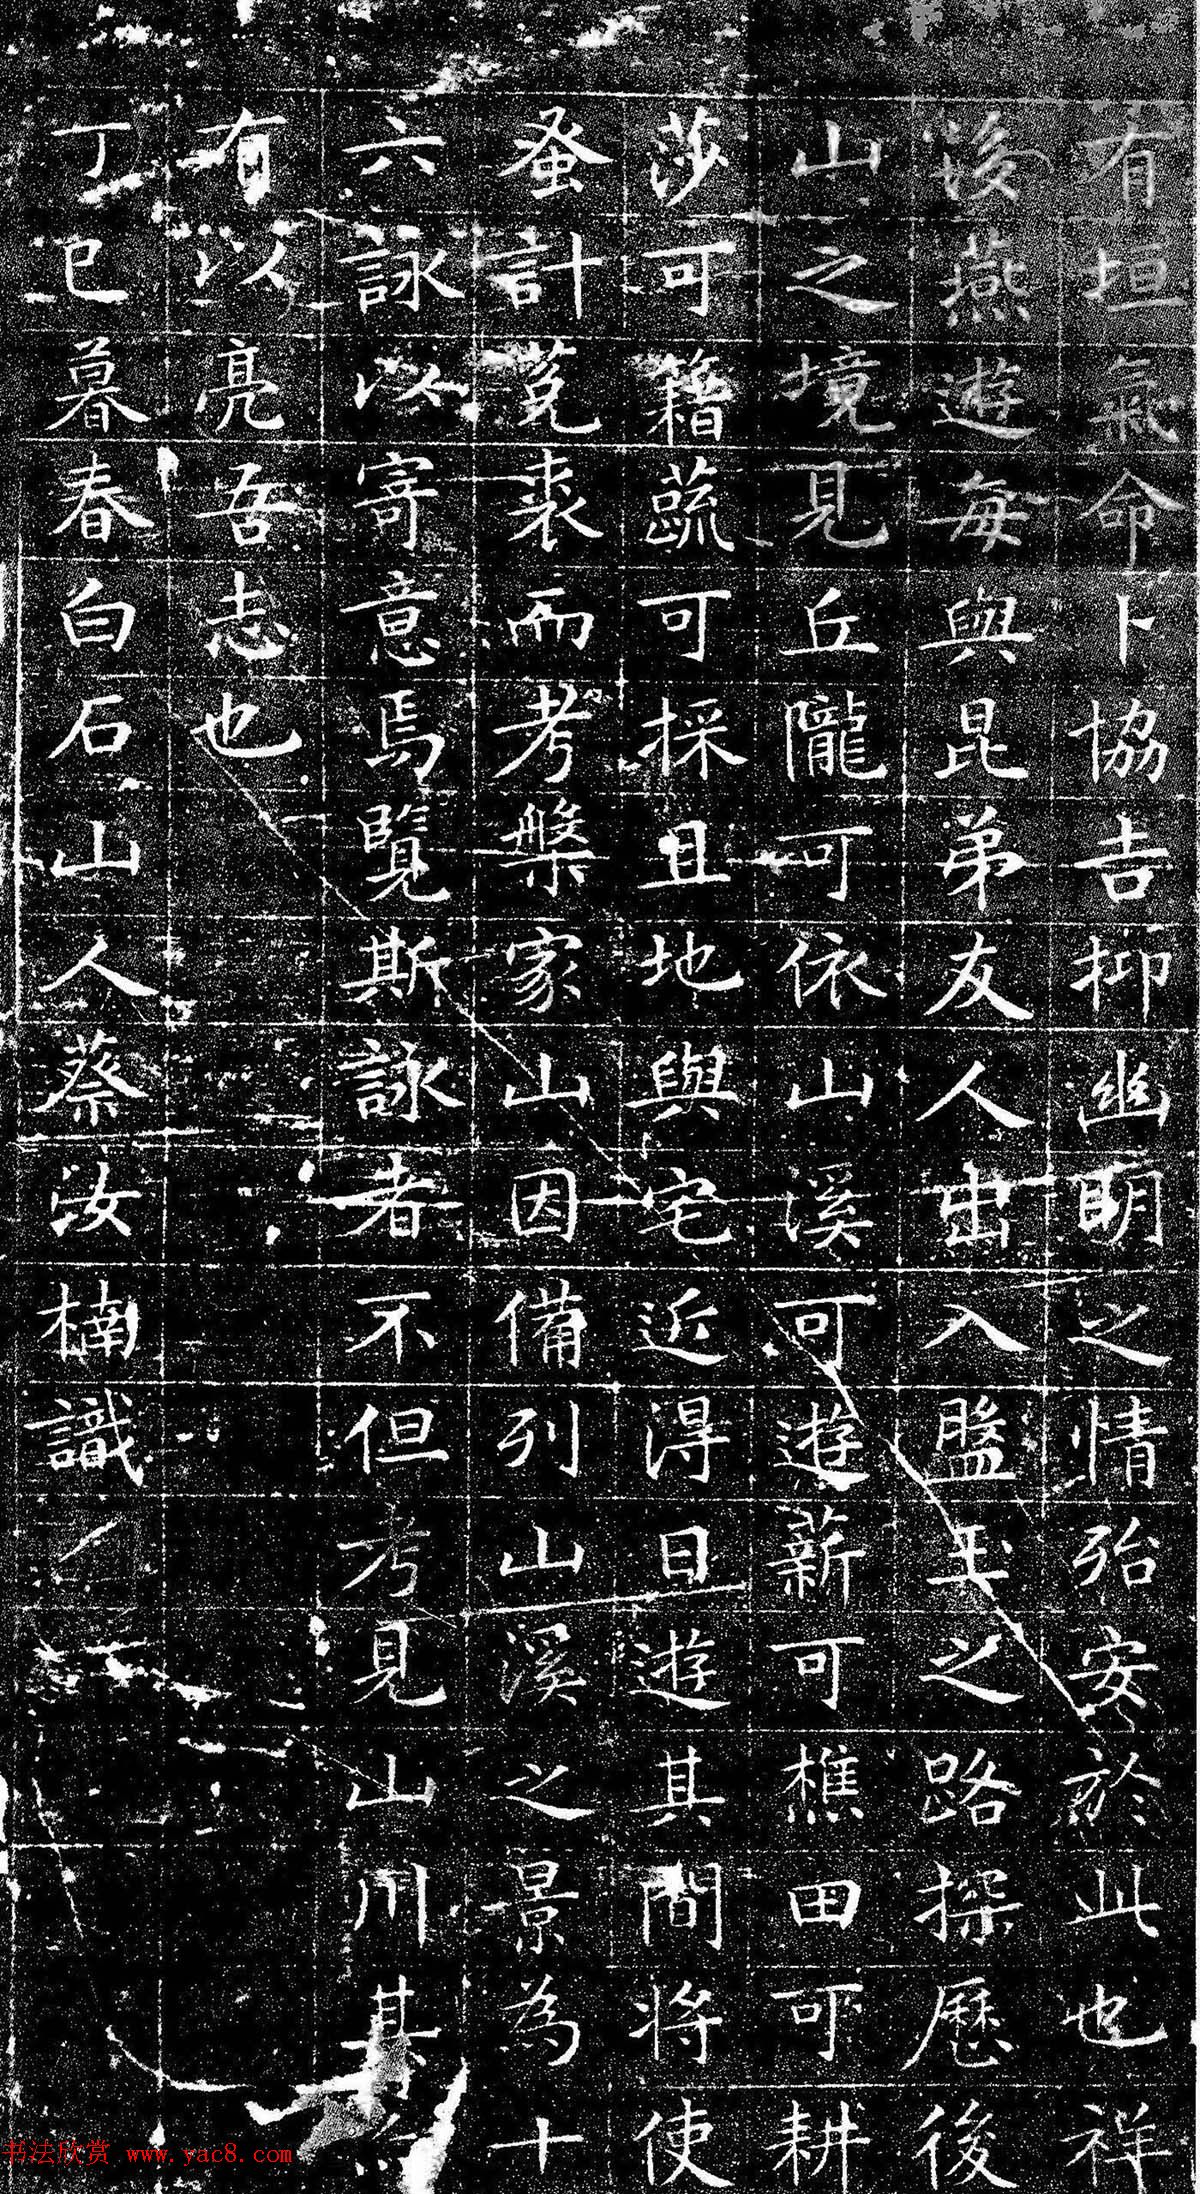 有垣氣命卜協吉抑幽明之情殆安於此也祥
後燕遊每與昆弟友人出入盤玉之路探歷後
山之境見丘隴可依山溪可遊薪可樵田可耕
莎可可籍蔬可採且地與宅近得日遊其間將使
蚤計菟裘而考槃家山因備列山溪之景為十
六詠以寄意焉覽斯詠者不但考見山川其
有以亮吾志也
丁巳暮春白石山人蔡汝楠識
书法欣赏 www.yac8.com